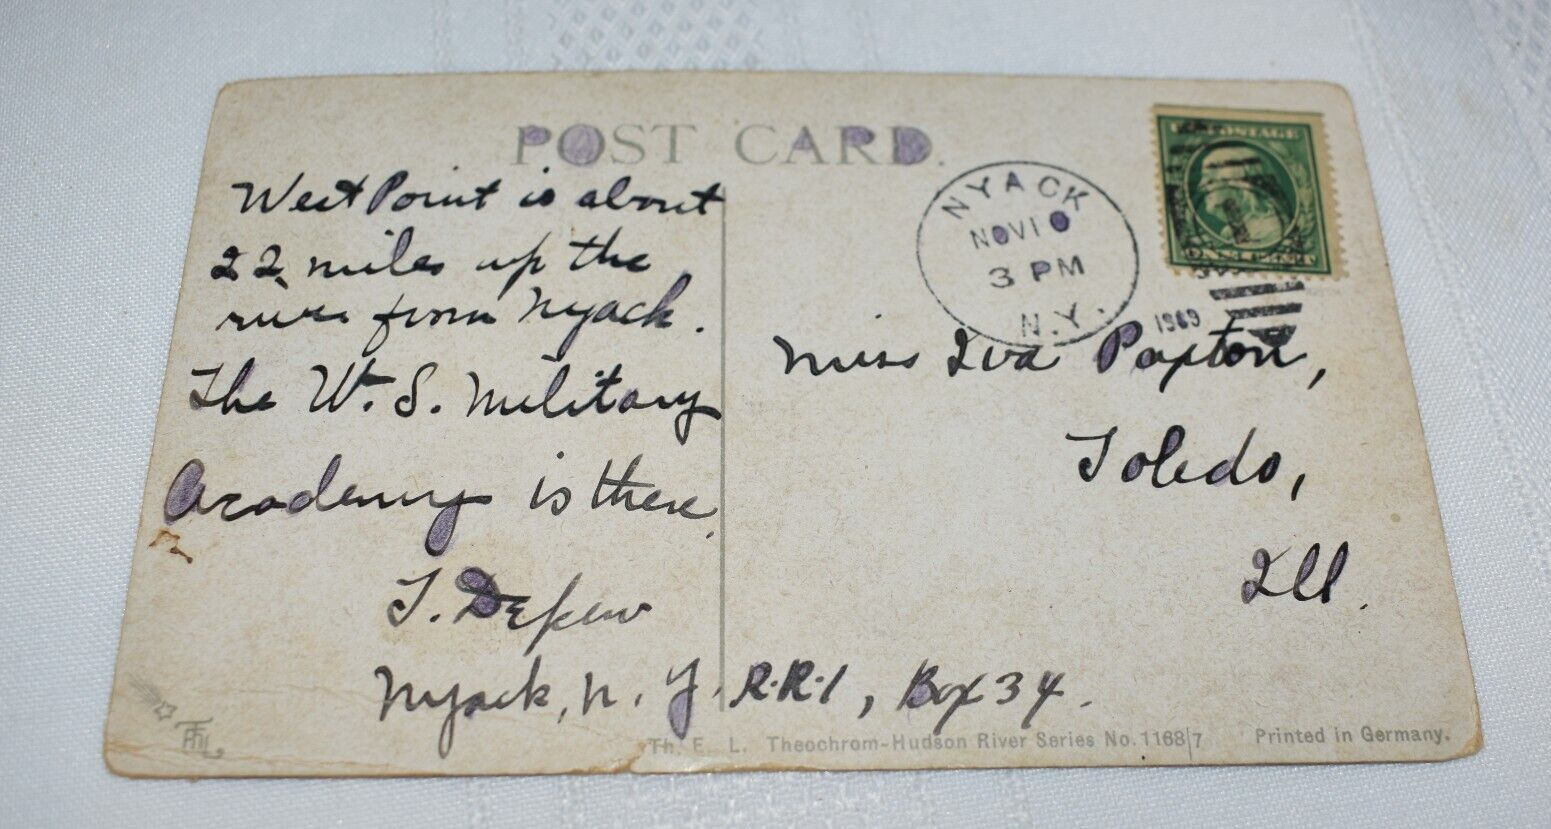 POST CARD.
West Point is about
22 miles up the
river from Nyack.
The U.S. Military
Academy is there.
T. Depew
Nyack, N.Y. R.R.1, Box 34.
NYACK
NOV 10
3 PM
N.Y.
1909
POSTAGE
Miss Iva Paxton,
Toledo,
Ill.
Th. E. L. Theochrom-Hudson River Series No. 1168/7 Printed in Germany.